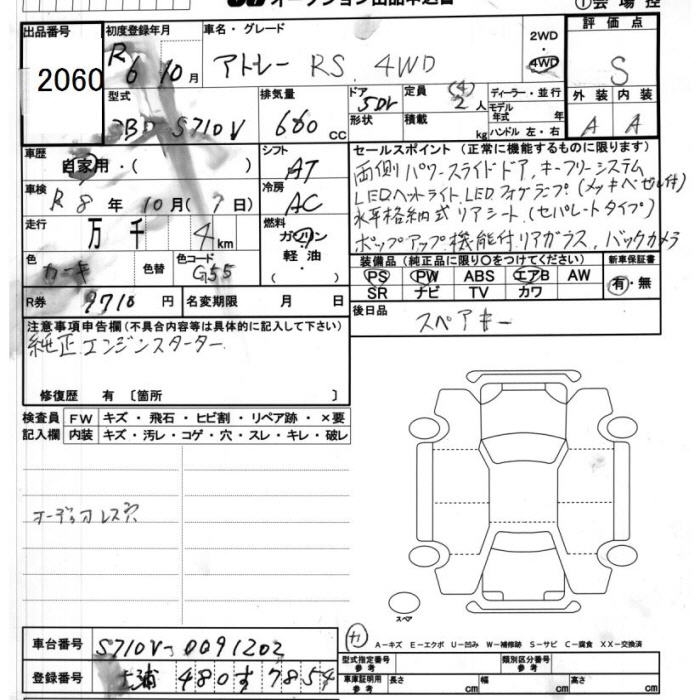 オークション出品申込書
① 会場控
出品番号 2060
初度登録年月 R6 10月
車名・グレード アトレー RS 4WD
2WD 4WD
評価点 S
外装 A 内装 A
型式 3BD S710V
排気量 660 cc
ドア 5Dr
形状
定員 (4) 2人
積載 kg
ディーラー・並行
モデル年式 年式
ハンドル 左・右
車歴 自家用・( )
シフト AT
車検 R8年10月(7日)
冷房 AC
走行 万千 4km
燃料 ガソリン 軽油 ( )
色 カーキ 色替 色コード G55
R券 9710円 名変期限 月 日
セールスポイント(正常に機能するものに限ります)
両側パワースライドドア、キーフリーシステム
LEDヘットライト、LEDフォグランプ(メッキベゼル付)
水平格納式リアシート(セパレートタイプ)
ポップアップ機能付リアガラス、バックカメラ
装備品(純正品に限り○をつけてください) 新車保証書
PS PW ABS エアB AW 有・無
SR ナビ TV カワ
後日品 スペアキー
注意事項申告欄(不具合内容等は具体的に記入して下さい)
純正エンジンスターター
修復歴 有〔箇所 〕
検査員 FW キズ・飛石・ヒビ割・リペア跡・×要
記入欄 内装 キズ・汚レ・コゲ・穴・スレ・キレ・破レ
オーディオレス穴
スペア
A－キズ E－エクボ U－凹み W－補修跡 S－サビ C－腐食 XX－交換済
車台番号 S710V-0091202
登録番号 土浦 480す 7854
型式指定番号 参考 類別区分番号 参考
車庫証明用 参考 長さ cm 幅 cm 高さ cm